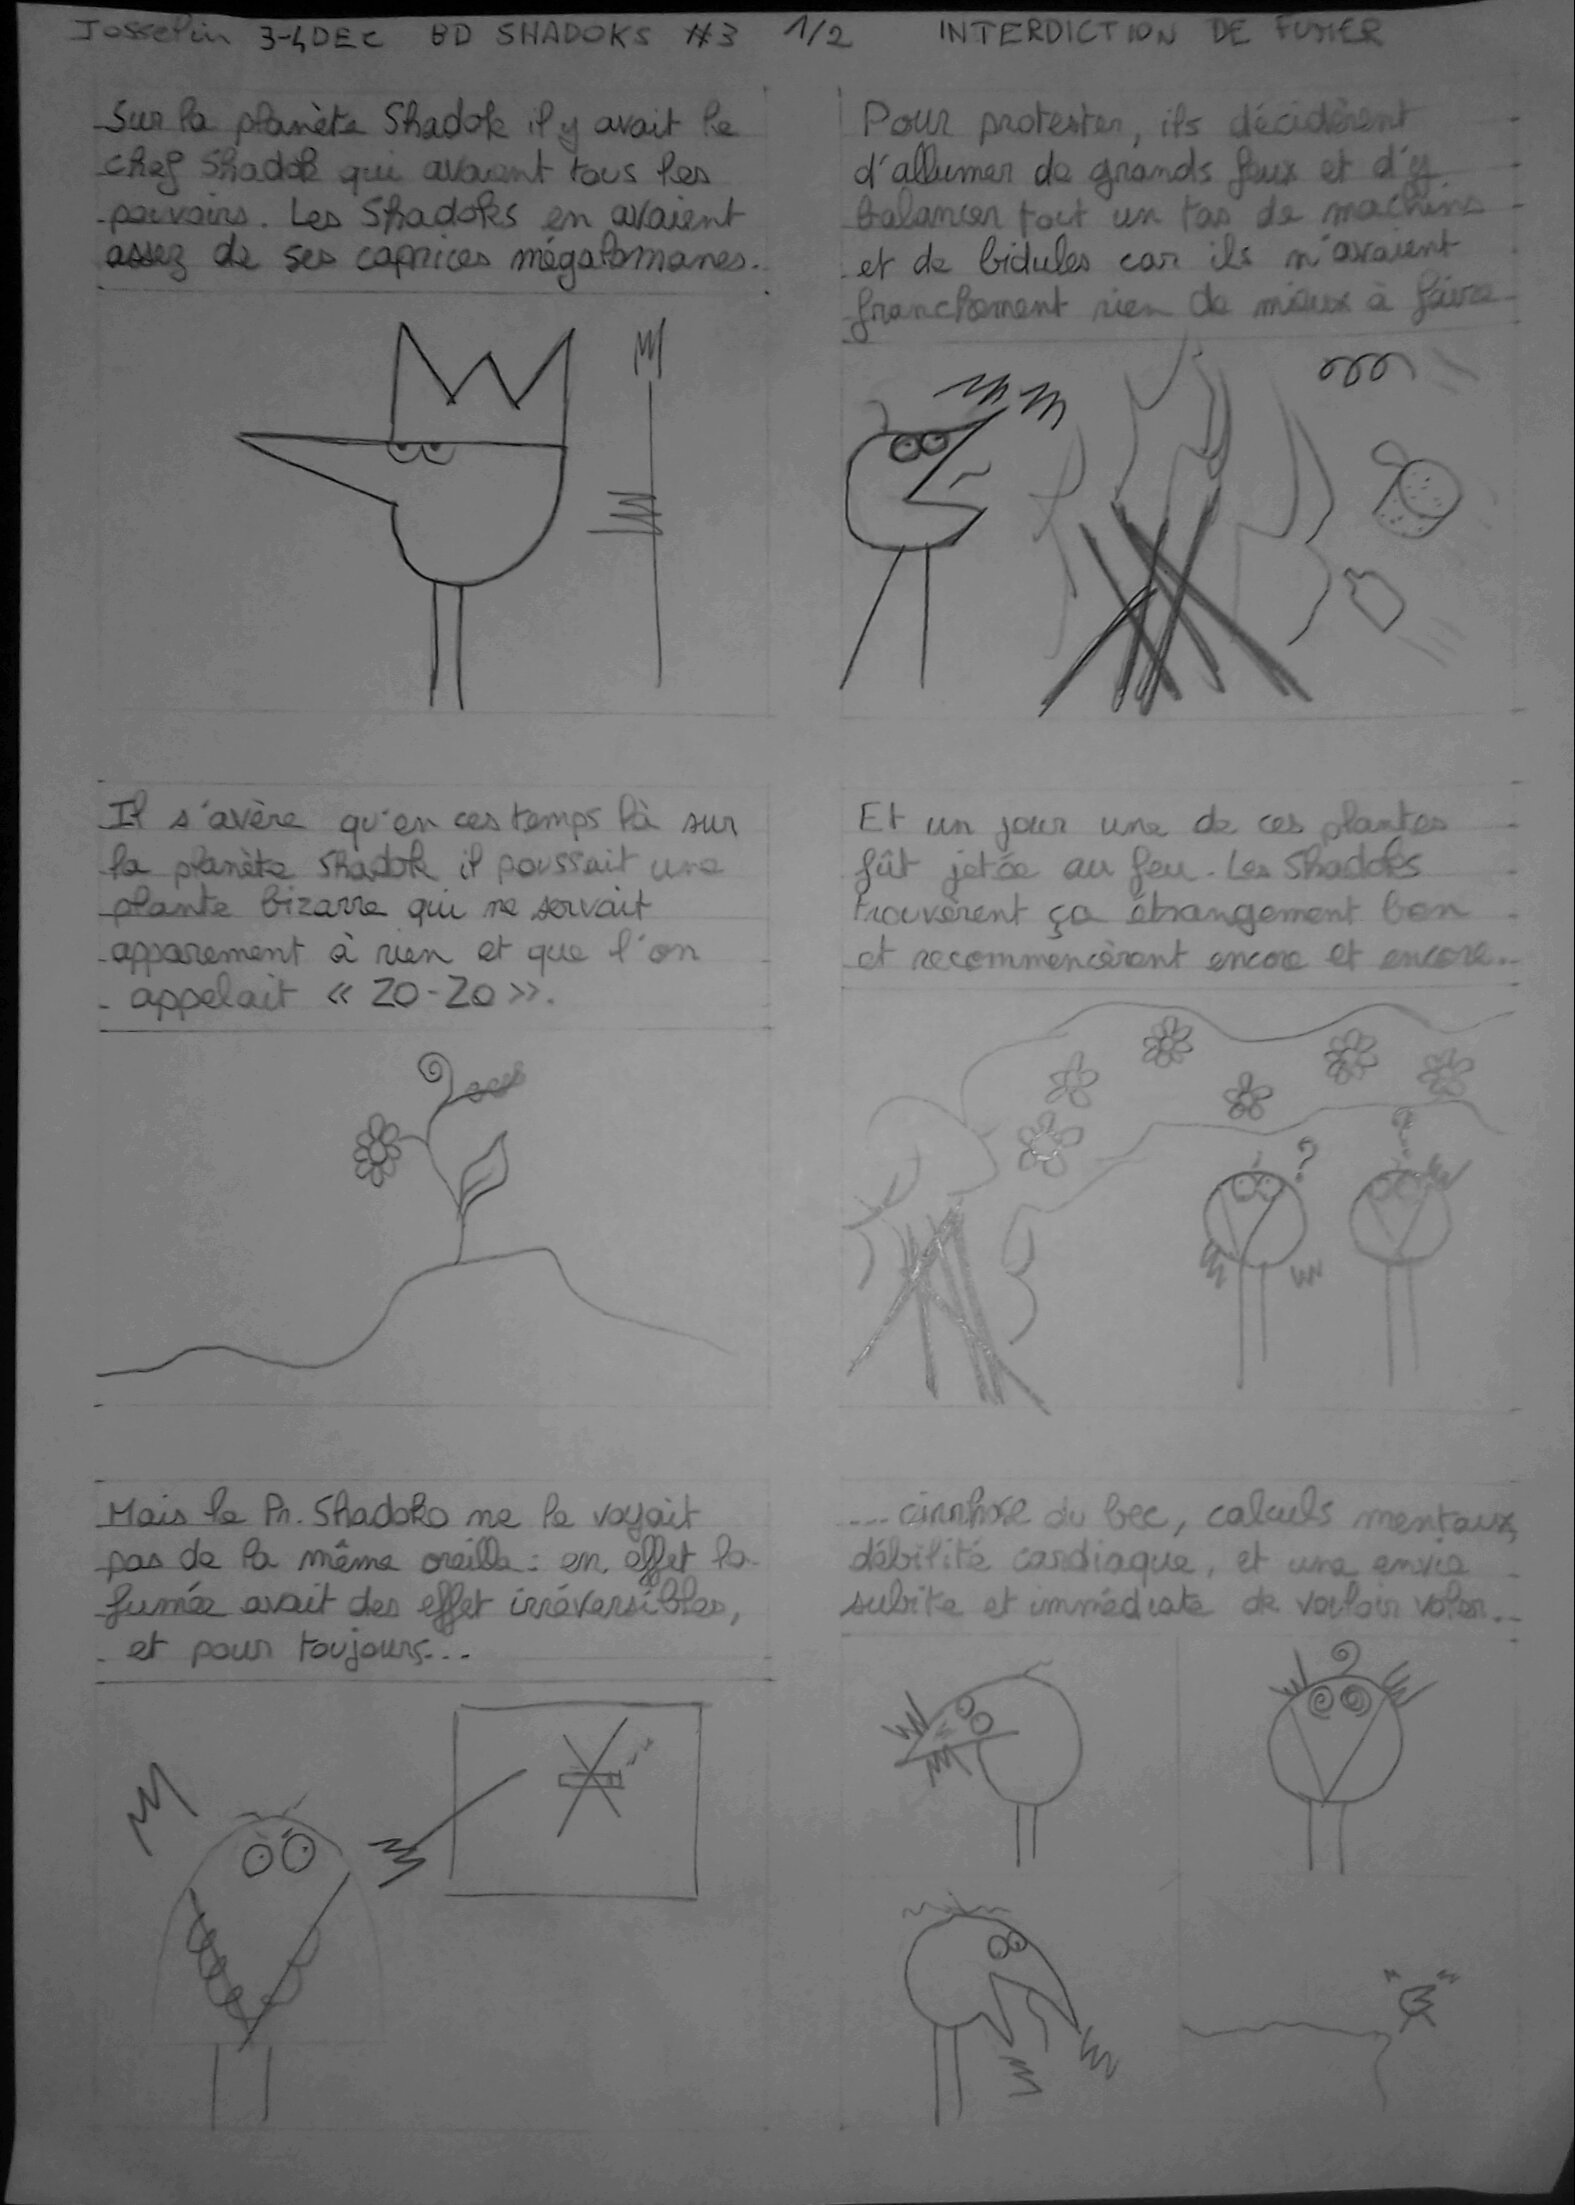 Josselin 3-4 DEC BD SHADOKS #3 1/2 INTERDICTION DE FUMER
Sur la planète Shadok il y avait le
chef Shadok qui avaient tous les
pouvoirs. Les Shadoks en avaient
assez de ses caprices mégalomanes.
Pour protester, ils décidèrent
d'allumer de grands feux et d'y
balancer tout un tas de machins
et de bidules car ils n'avaient
franchement rien de mieux à faire
Il s'avère qu'en ces temps là sur
la planète Shadok il poussait une
plante bizarre qui ne servait
apparement à rien et que l'on
appelait « ZO-ZO ».
Et un jour une de ces plantes
fût jetée au feu. Les Shadoks
trouvèrent ça étrangement bon
et recommencèrent encore et encore...
?
?
Mais le Pr. Shadoko ne le voyait
pas de la même oreille : en effet la
fumée avait des effet irréversibles,
et pour toujours...
... cirrhose du bec, calculs mentaux,
débilité cardiaque, et une envie
subite et immédiate de vouloir voler...